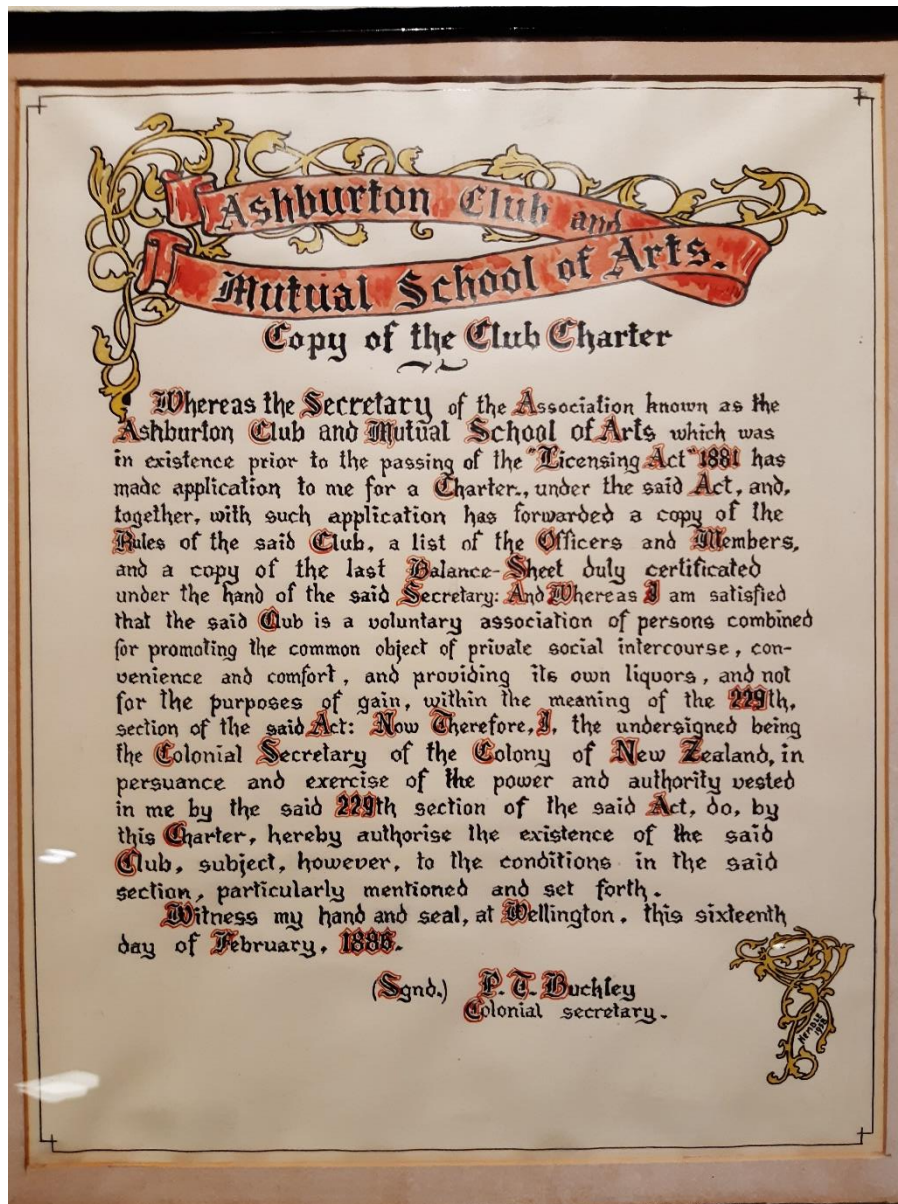 Ashburton Club and
Mutual School of Arts.
Copy of the Club Charter
Whereas the Secretary of the Association known as the
Ashburton Club and Mutual School of Arts which was
in existence prior to the passing of the "Licensing Act" 1881 has
made application to me for a Charter., under the said Act, and,
together, with such application has forwarded a copy of the
Rules of the said Club, a list of the Officers and Members,
and a copy of the last Balance-Sheet duly certificated
under the hand of the said Secretary: And Whereas I am satisfied
that the said Club is a voluntary association of persons combined
for promoting the common object of private social intercourse, con-
venience and comfort, and providing its own liquors, and not
for the purposes of gain, within the meaning of the 229th,
section of the said Act: Now Therefore, I, the undersigned being
the Colonial Secretary of the Colony of New Zealand, in
persuance and exercise of the power and authority vested
in me by the said 229th section of the said Act, do, by
this Charter, hereby authorise the existence of the said
Club, subject, however, to the conditions in the said
section, particularly mentioned and set forth.
Witness my hand and seal, at Wellington. this sixteenth
day of February, 1886.
(Sgnd.) P. T. Buckley
Colonial secretary.